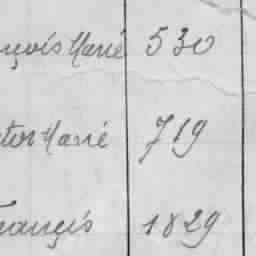 çois Marié 530
tor Marié 719
rançois 1829